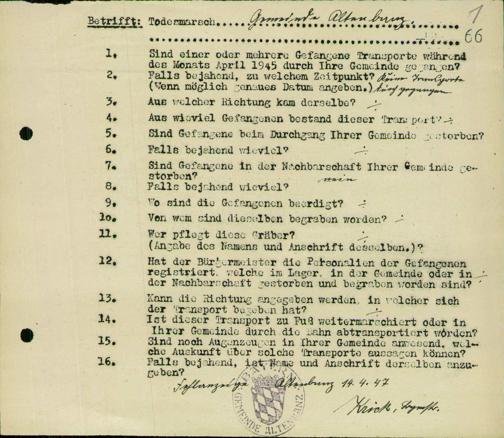 Betrifft: Todesmarsch. Gemeinde Altenburg.
1
66
1. Sind einer oder mehrere Gefangene Transporte während
des Monats April 1945 durch Ihre Gemeinde gegangen?
2. Falls bejahend, zu welchem Zeitpunkt? Keine Transporte
(Wenn möglich genaues Datum angeben.) durchgegangen
3. Aus welcher Richtung kam derselbe? -:-
4. Aus wieviel Gefangenen bestand dieser Transport? -:-
5. Sind Gefangene beim Durchgang Ihrer Gemeinde gestorben?
6. Falls bejahend wieviel? -:-
7. Sind Gefangene in der Nachbarschaft Ihrer Gemeinde ge-
storben? nein
8. Falls bejahend wieviel?
9. Wo sind die Gefangenen beerdigt? -:-
10. Von wem sind dieselben begraben worden? -:-
11. Wer pflegt diese Gräber? -:-
(Angabe des Namens und Anschrift desselben.)?
12. Hat der Bürgermeister die Personalien der Gefangenen
registriert, welche im Lager, in der Gemeinde oder in -:-
der Nachbarschaft gestorben und begraben worden sind?
13. Kann die Richtung angegeben werden, in welcher sich
der Transport begeben hat? -:-
14. Ist dieser Transport zu Fuß weitermarschiert oder in
Ihrer Gemeinde durch die Bahn abtransportiert worden?
15. Sind noch Augenzeugen in Ihrer Gemeinde anwesend, wel-
che Auskunft über solche Transporte aussagen können?
16. Falls bejahend, ist Name und Anschrift derselben anzu-
geben?
Altenburg 19.4.47
GEMEINDE